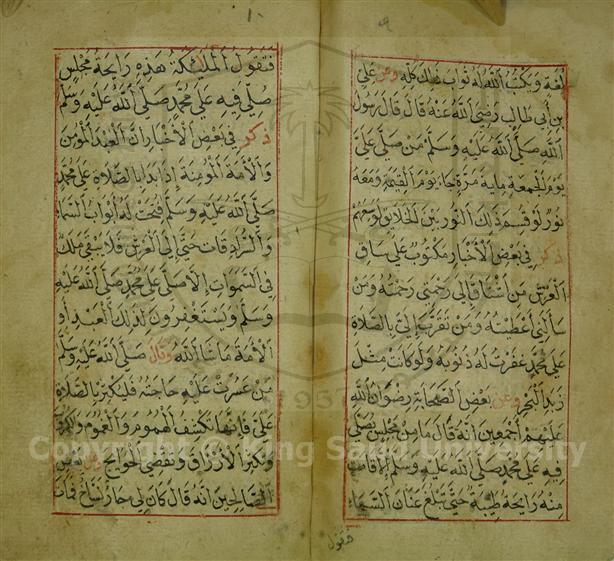 ٩
لفه ويكتب الله له ثواب ذلك كله وعن علي
بن أبي طالب رضي الله عنه قال قال رسول
الله صلى الله عليه وسلم من صلى علي
يوم الجمعة ماية مرة جا يوم القيمة ومعه
نور لو قسم ذلك النور بين الخلايق لوسعهم
ذكر في بعض الأخبار مكتوب على ساق
العرش من اشتاق إلي رحمتي رحمته ومن
سألني أعطيته ومن تقرب إلي بالصلاة
على محمد غفرت له ذنوبه ولو كانت مثل
زبد البحر وعن بعض الصحابة رضوان الله
عليهم أجمعين أنه قال ما من مجلس يصلى
فيه على محمد صلى الله عليه وسلم إلا قامت
منه رايحة طيبة حتى تبلغ عنان السماء
فتقول
١٠
فتقول الملئكة هذه رايحة مجلس
صلي فيه على محمد صلى الله عليه وسلم
ذكر في بعض الأخبار ان العبد المؤمن
والأمة المؤمنة إذا بدا بالصلاة على محمد
صلى الله عليه وسلم فتحت له أبواب السماء
والسرادقات حتى إلى العرش فلا يبقى ملك
في السموات إلا صلى على محمد صلى الله عليه
وسلم ويستغفرون لذلك العبد أو
الأمة ما شا الله وقال صلى الله عليه وسلم
من عسرت عليه حاجته فليكثر بالصلاة
علي فإنها تكشف الهموم والغموم والكروب
وتكثر الأرزاق وتقضي الحوايج وعن بعض
الصالحين انه قال كان لي جار نساخ فمات
Copyright © King Saud University
1957